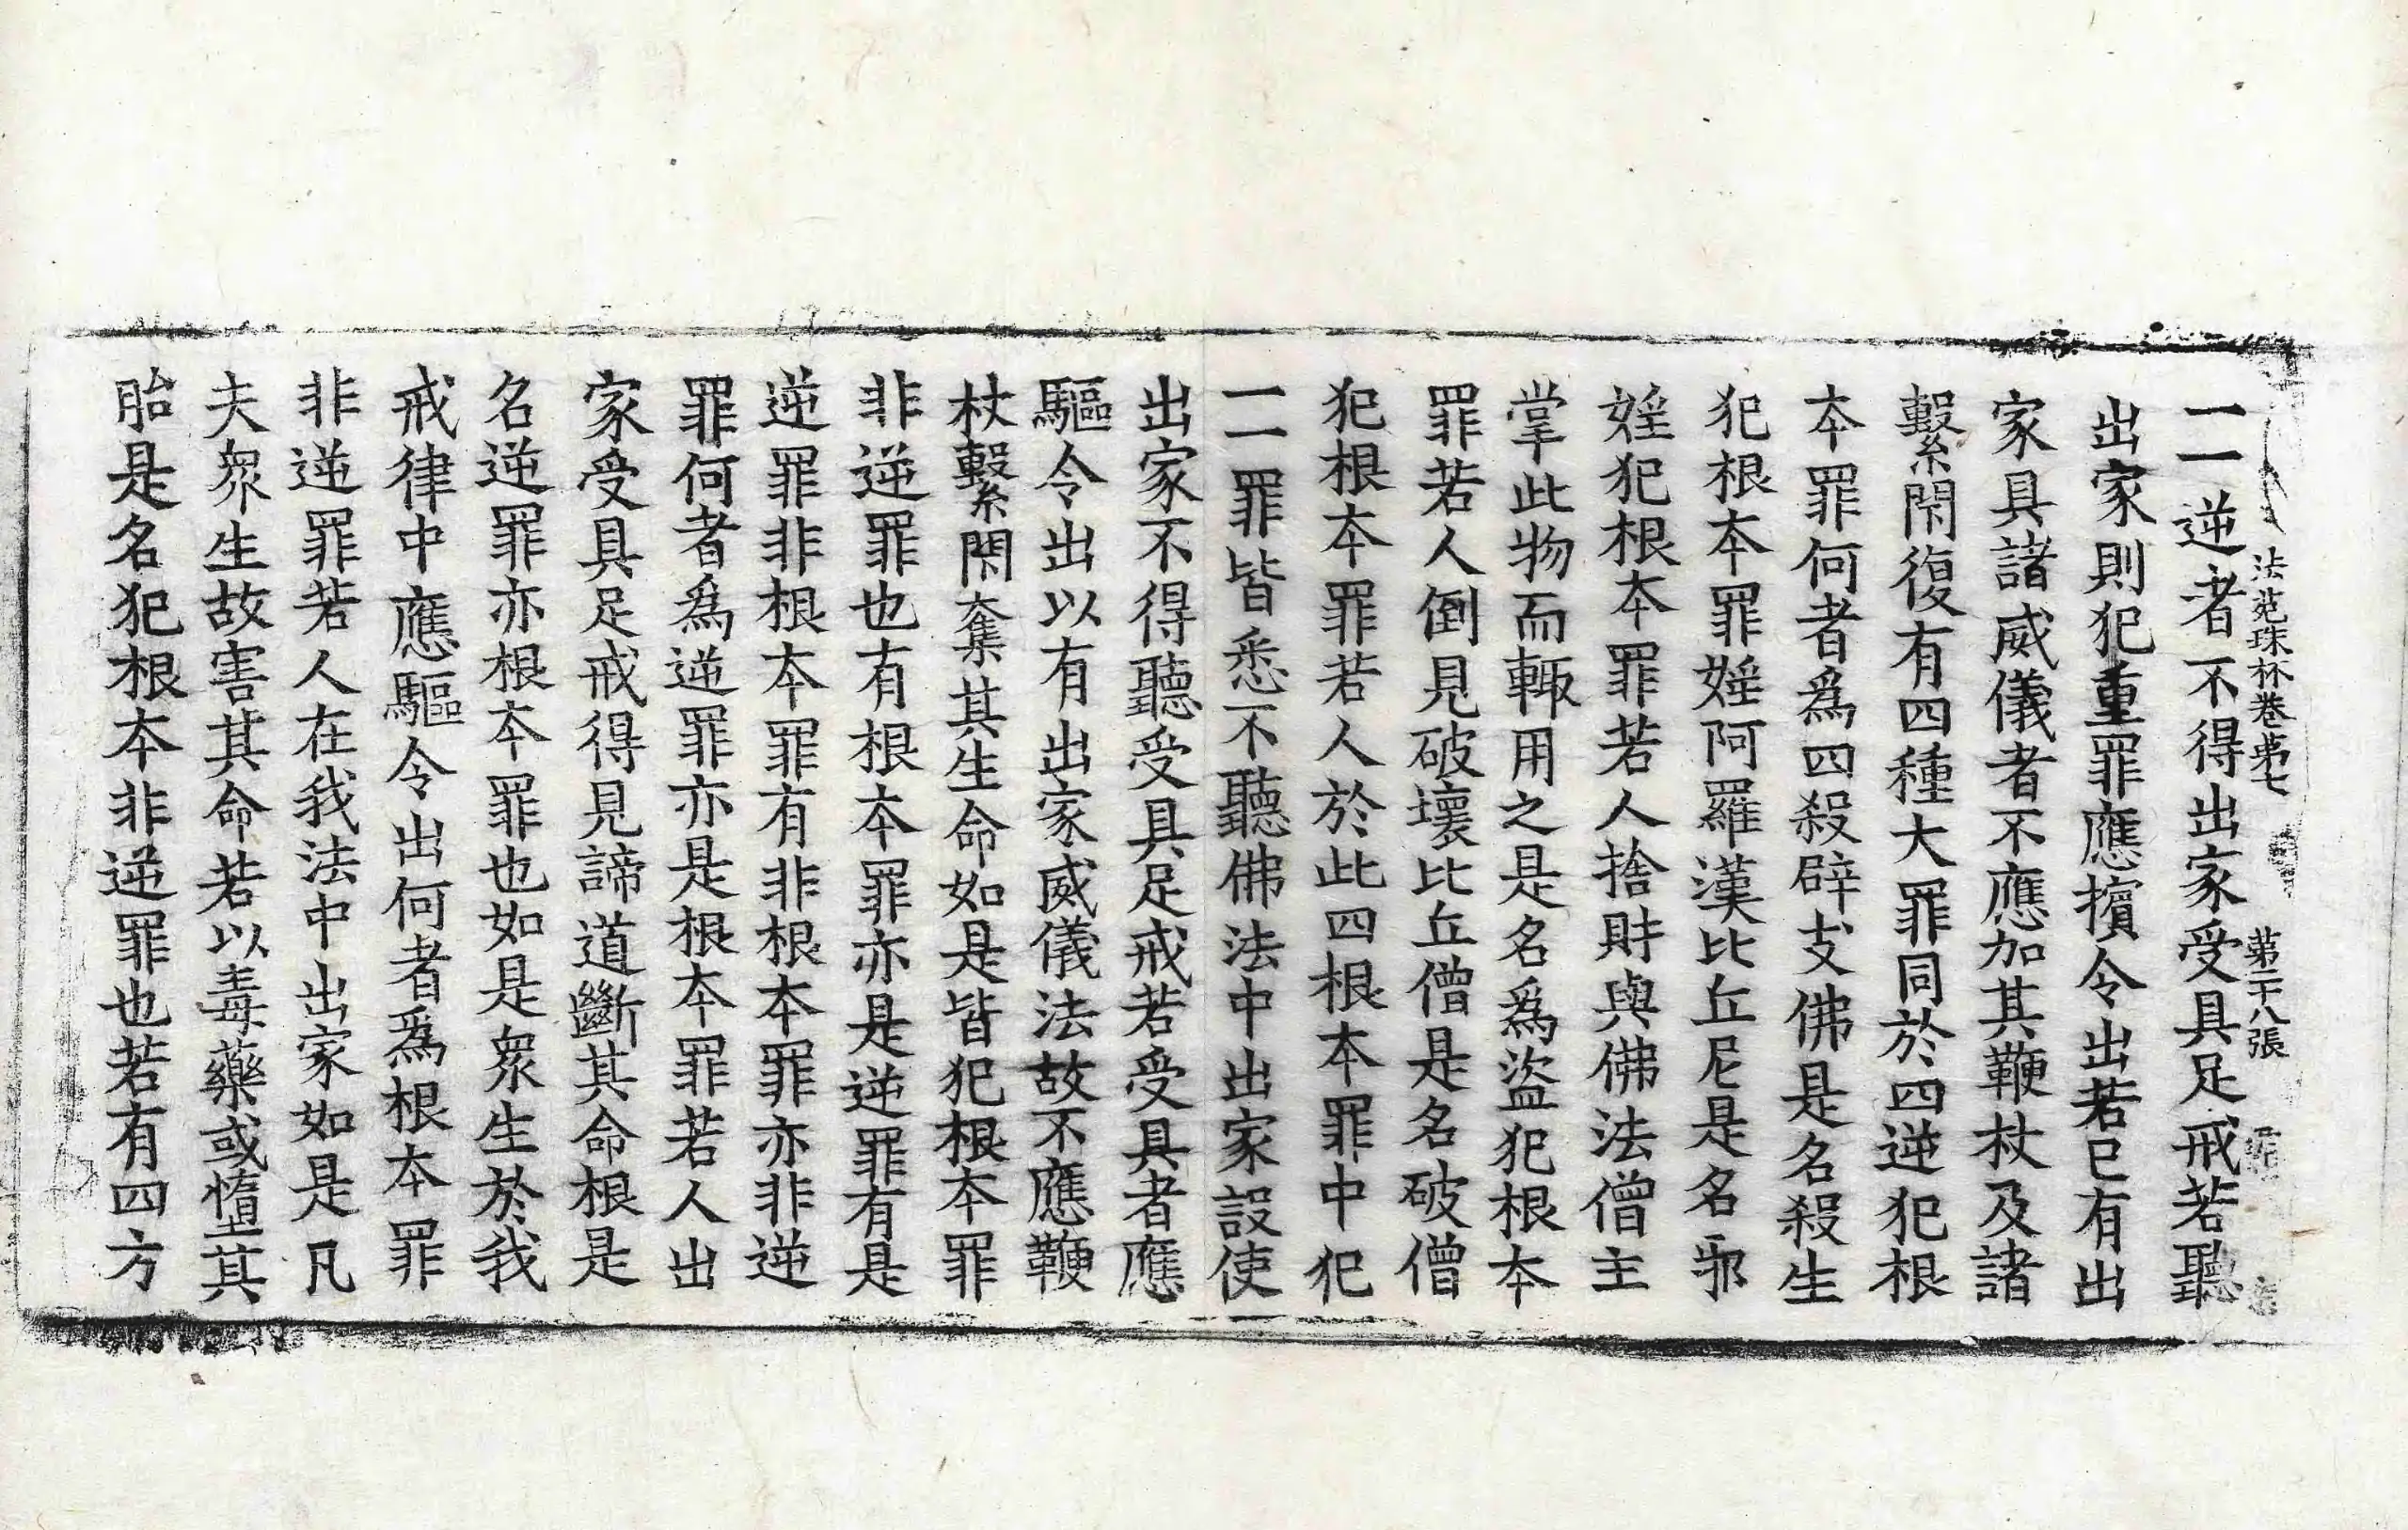 法苑珠林卷苐七 苐二十八張
一一逆者不得出家受具足戒若聽
出家則犯重罪應擯令出若已有出
家具諸威儀者不應加其鞭杖及諸
繫閇復有四種大罪同於四逆犯根
本罪何者爲四殺辟支佛是名殺生
犯根本罪婬阿羅漢比丘尼是名邪
婬犯根本罪若人捨財與佛法僧主
掌此物而輙用之是名爲盜犯根本
罪若人倒見破壞比丘僧是名破僧
犯根本罪若人於此四根本罪中犯
一一罪皆悉不聽佛法中出家設使
出家不得聽受具足戒若受具者應
驅令出以有出家威儀法故不應鞭
杖繫閇奪其生命如是皆犯根本罪
非逆罪也有根本罪亦是逆罪有是
逆罪非根本罪有非根本罪亦非逆
罪何者爲逆罪亦是根本罪若人出
家受具足戒得見諦道斷其命根是
名逆罪亦根本罪也如是衆生於我
戒律中應驅令出何者爲根本罪
非逆罪若人在我法中出家如是凡
夫衆生故害其命若以毒藥或墮其
胎是名犯根本非逆罪也若有四方